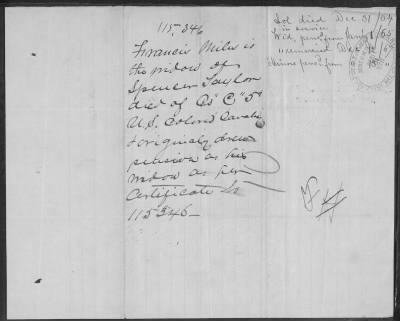 115,346
Francis Miles is
the widow of
Spencer Taylor
died of Co "C" 5th
U.S. Colored Cavalry
& originaly drew
pension as his
widow as per
Certificate No
115346
Sol died Dec 31/64
in service
Wid. pend from Jany 1/65
" remarried Dec
Minor pend from